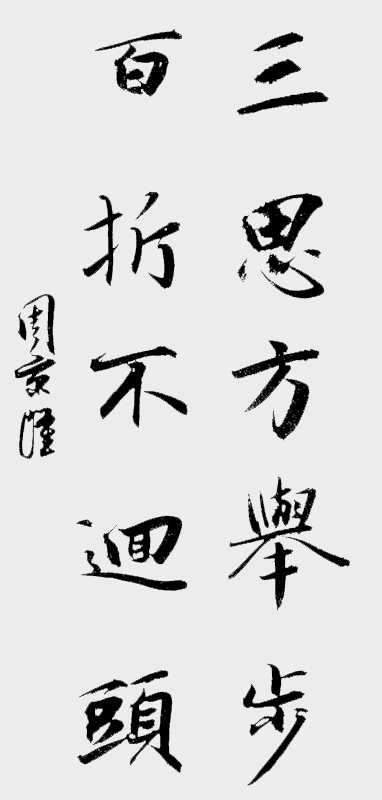 三思方舉步
百折不迴頭
周京